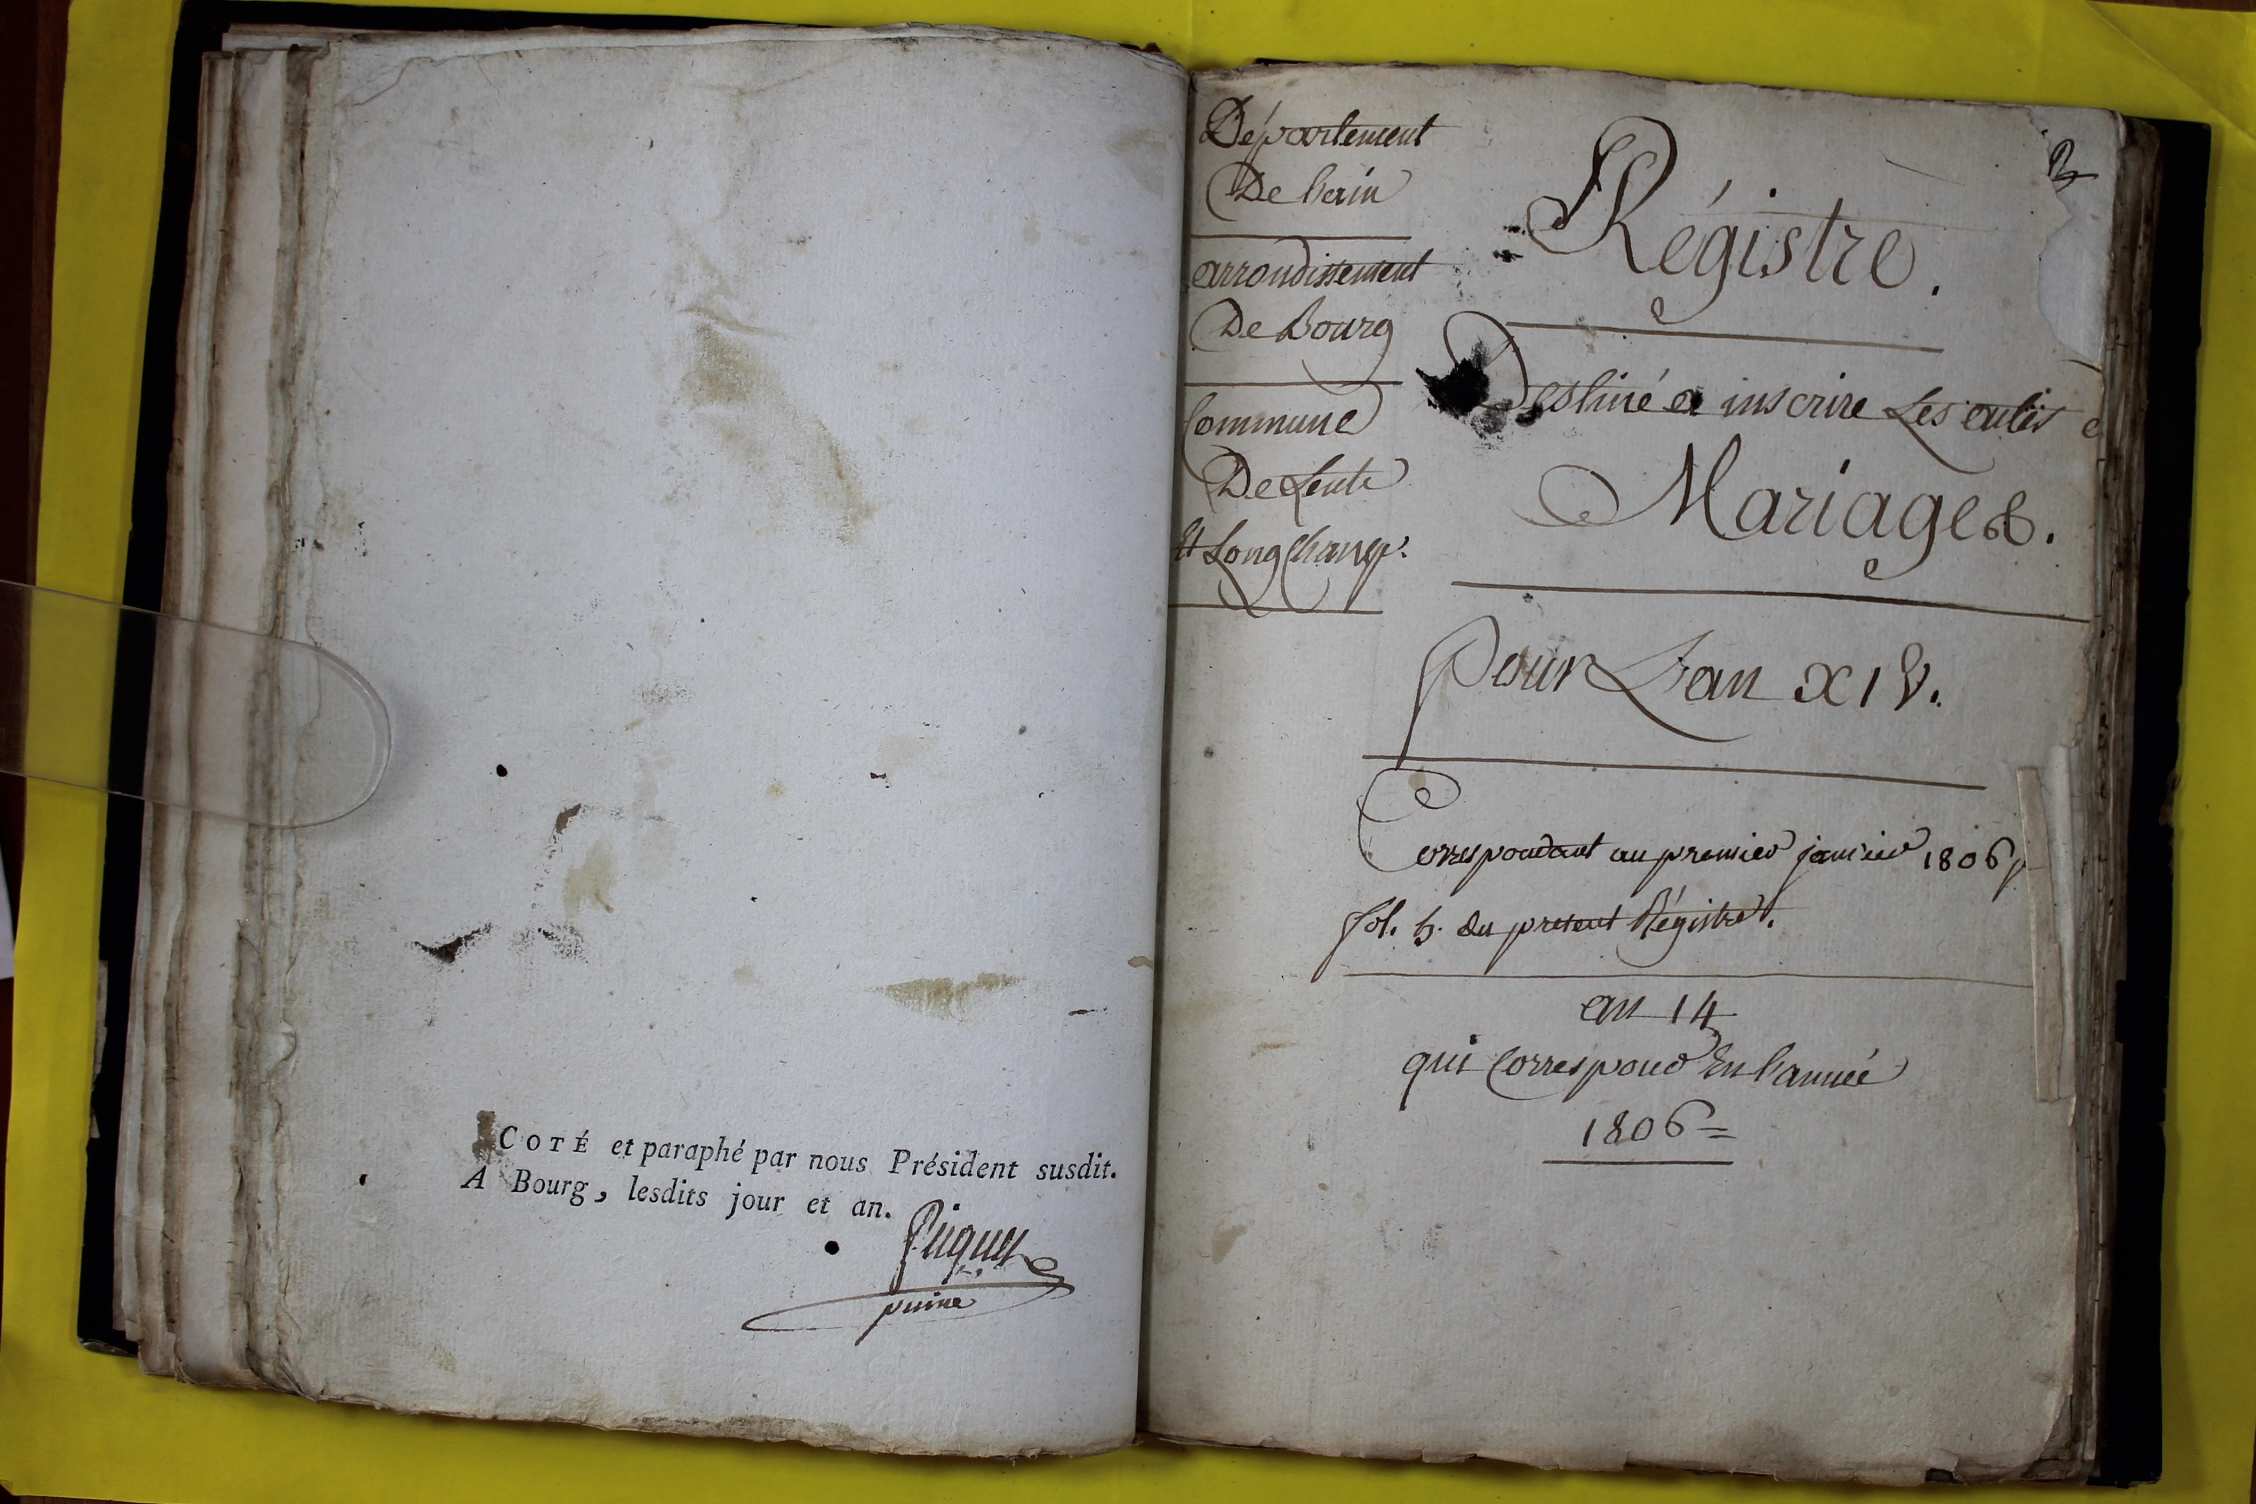 COTÉ et paraphé par nous Président susdit.
A Bourg, lesdits jour et an.
puine
Département
De Lain
arrondissement
De Bourg
Commune
De Lente
Et LongChamp.
Régistre.
Destiné a inscrire Les actes
Mariages.
pour Lan XIV.
Correspondant au premier janvier 1806
fol. 5. du present Régistre.
an 14
qui Correspond En Lannée
1806=